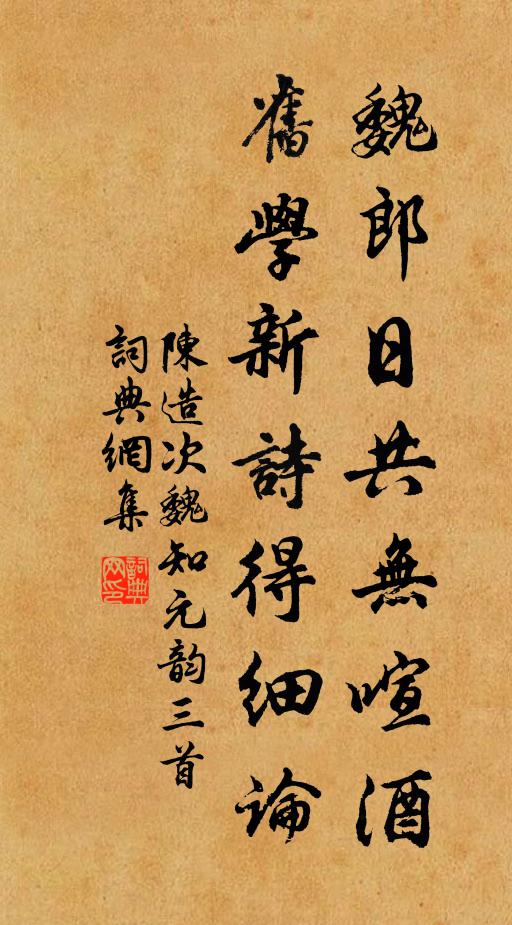 魏郎日共無喧酒
舊學新詩得細論
陳造次魏知元韵三首
詞典網集
詞典网印